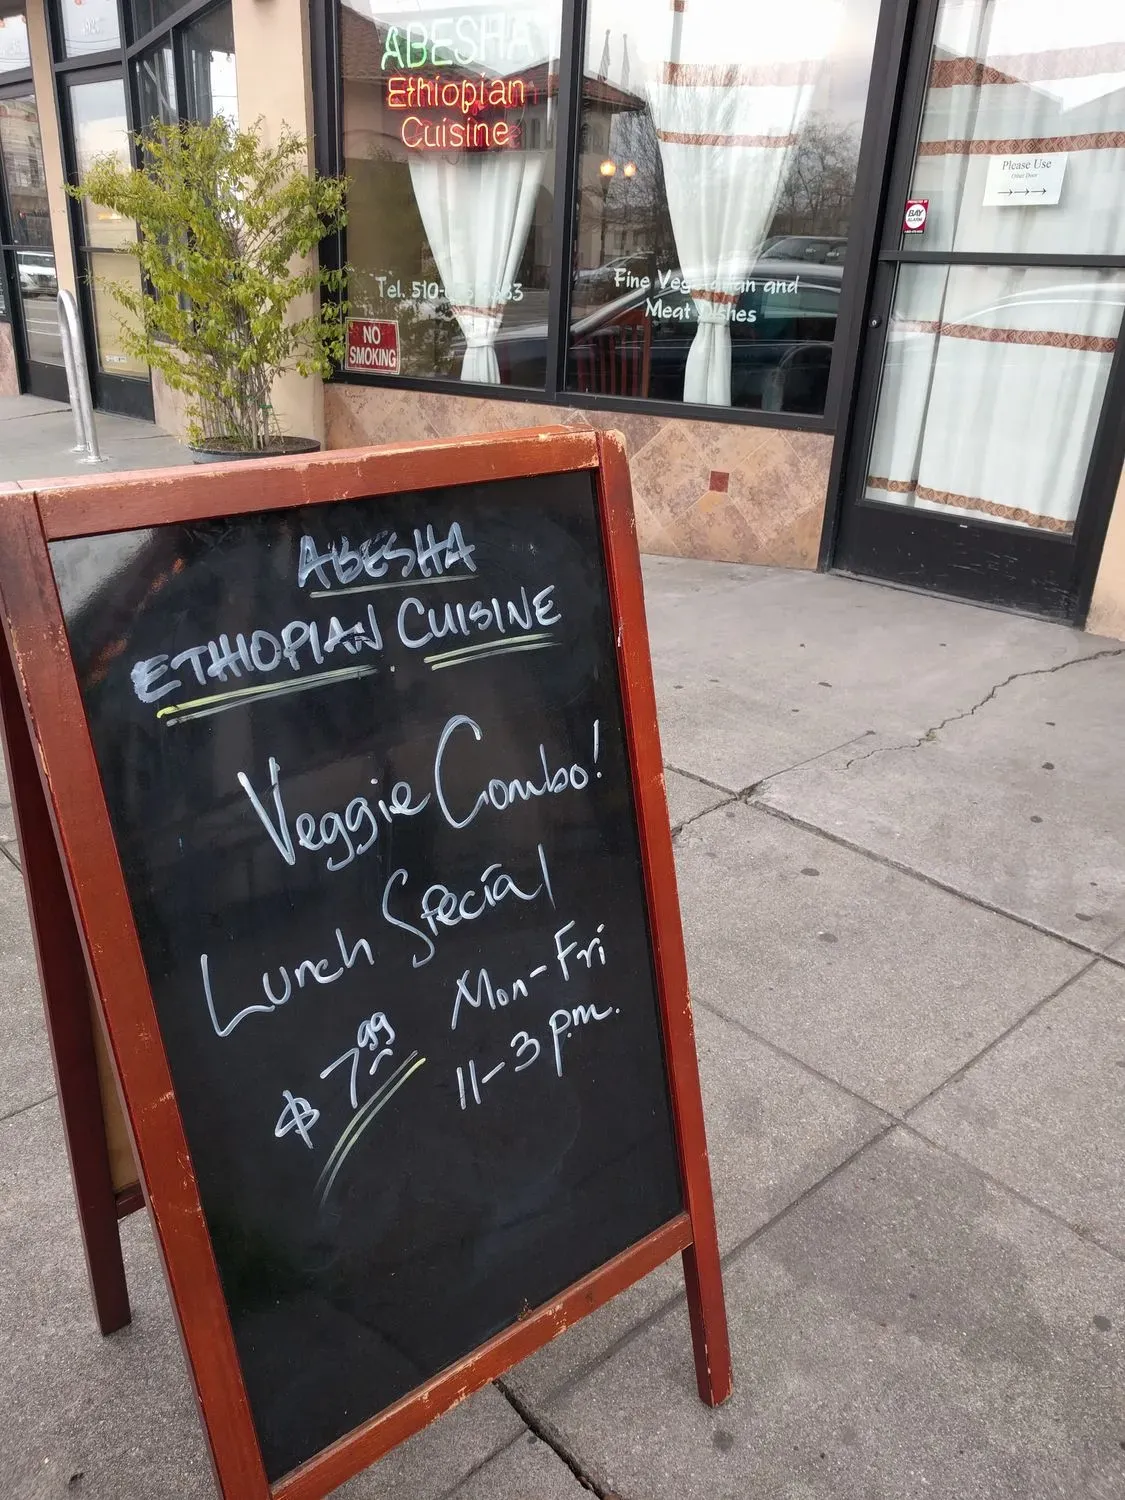 ABESHA
Ethiopian
Cuisine
Tel. 510-
NO
SMOKING
Fine and
Meat
Please Use
Other Door
BAY
ALARM
ABESHA
ETHIOPIAN CUISINE
Veggie Combo!
Lunch Special
$7.99
Mon-Fri
11-3 p.m.